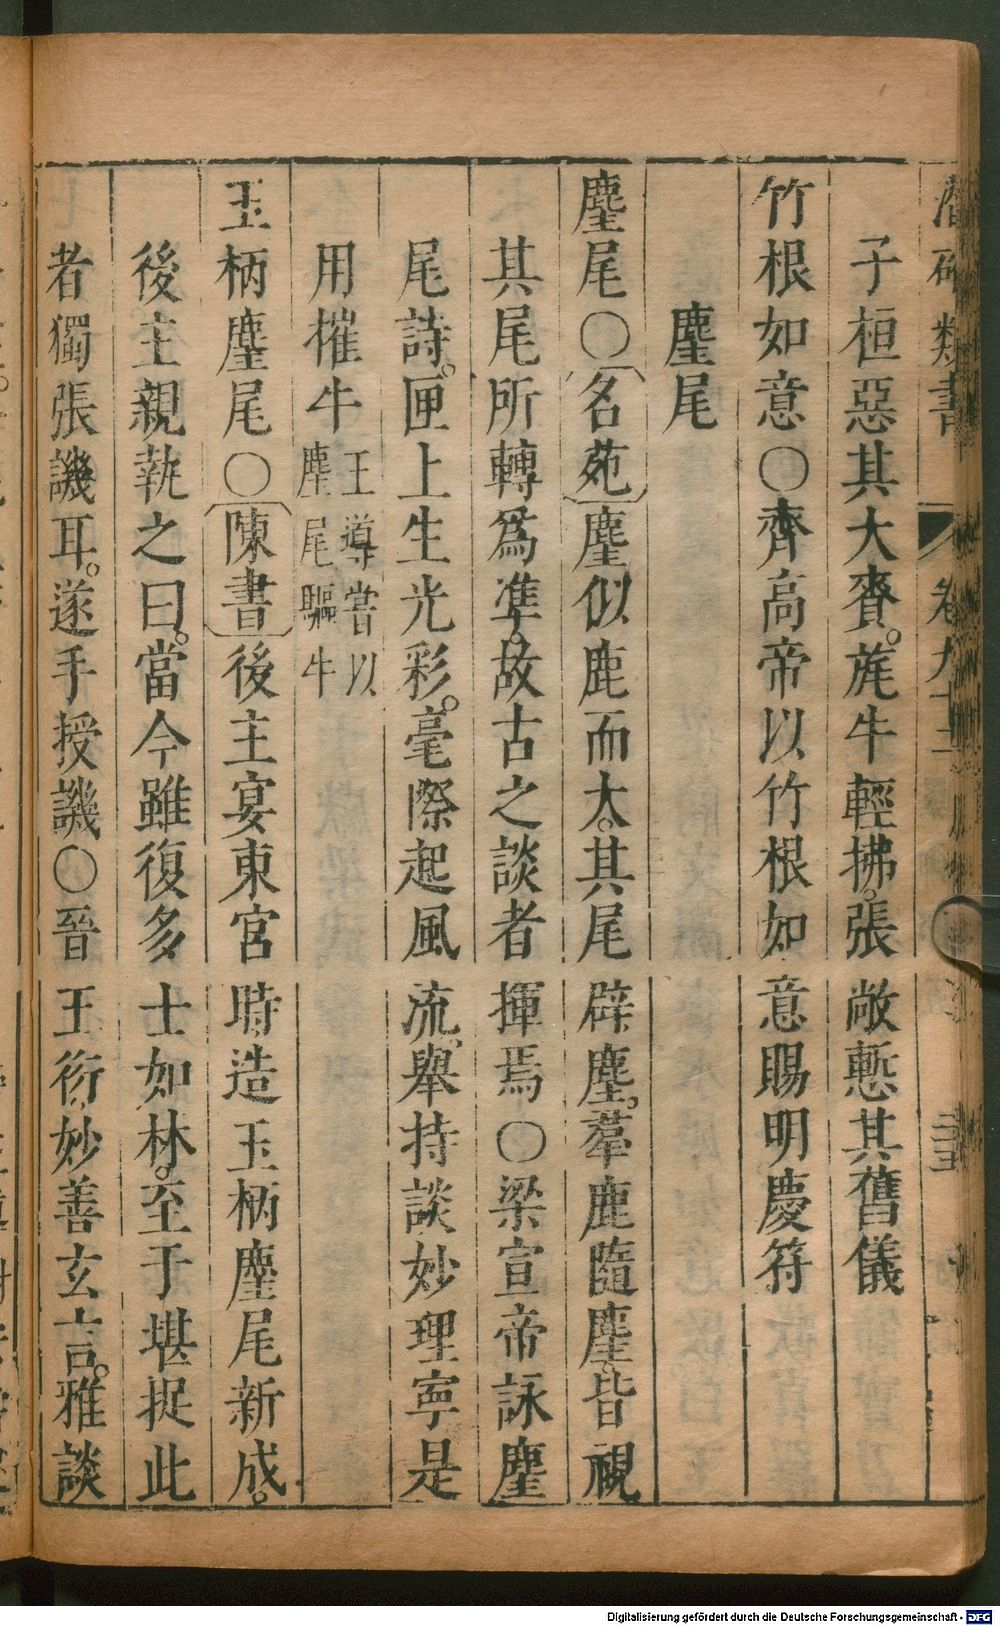 子桓惡其大賚。旄牛輕拂。張敞慙其舊儀
竹根如意〇齊高帝以竹根如意賜明慶符
麈尾
麈尾〇〔名苑〕麈似鹿而大。其尾辟塵。羣鹿隨麈。皆視
其尾所轉爲準。故古之談者揮焉〇梁宣帝詠麈
尾詩。匣上生光彩。毫際起風流。舉持談妙理寧是
用摧牛王導嘗以麈尾驅牛
玉柄麈尾〇〔陳書〕後主宴東宮時造玉柄麈尾新成。
後主親執之曰。當今雖復多士如林。至于堪捉此
者獨張譏耳。遂手授譏〇晉王衍妙善玄言。雅談
類書 卷九十
Digitalisierung gefördert durch die Deutsche Forschungsgemeinschaft - DFG